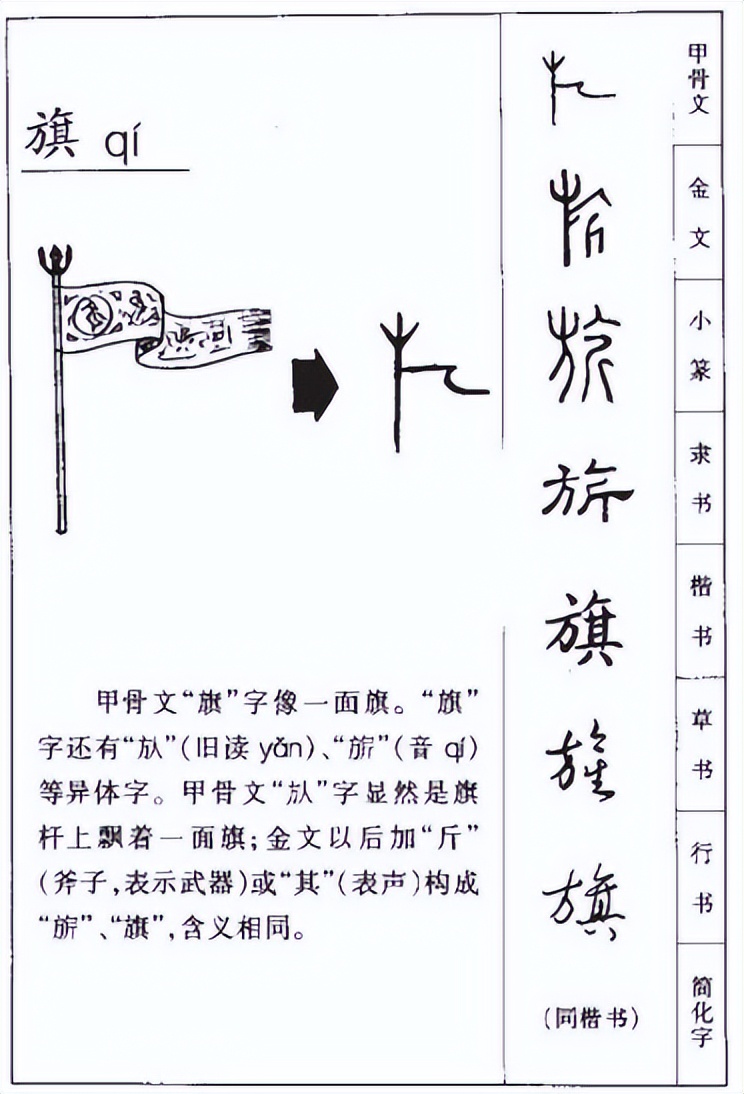 旗 qí
甲骨文“旗”字像一面旗。“旗”
字还有“㫃”(旧读 yǎn)、“旂”(音 qí)
等异体字。甲骨文“㫃”字显然是旗
杆上飘着一面旗;金文以后加“斤”
(斧子,表示武器)或“其”(表声)构成
“旂”、“旗”,含义相同。
甲骨文
金文
小篆
旂
隶书
旗
楷书
草书
旗
行书
(同楷书)
简化字